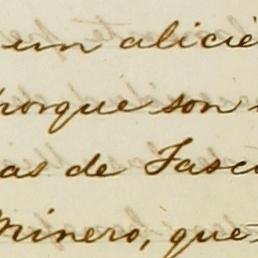 un alicie
porque son
as de Tasco
Minero, que